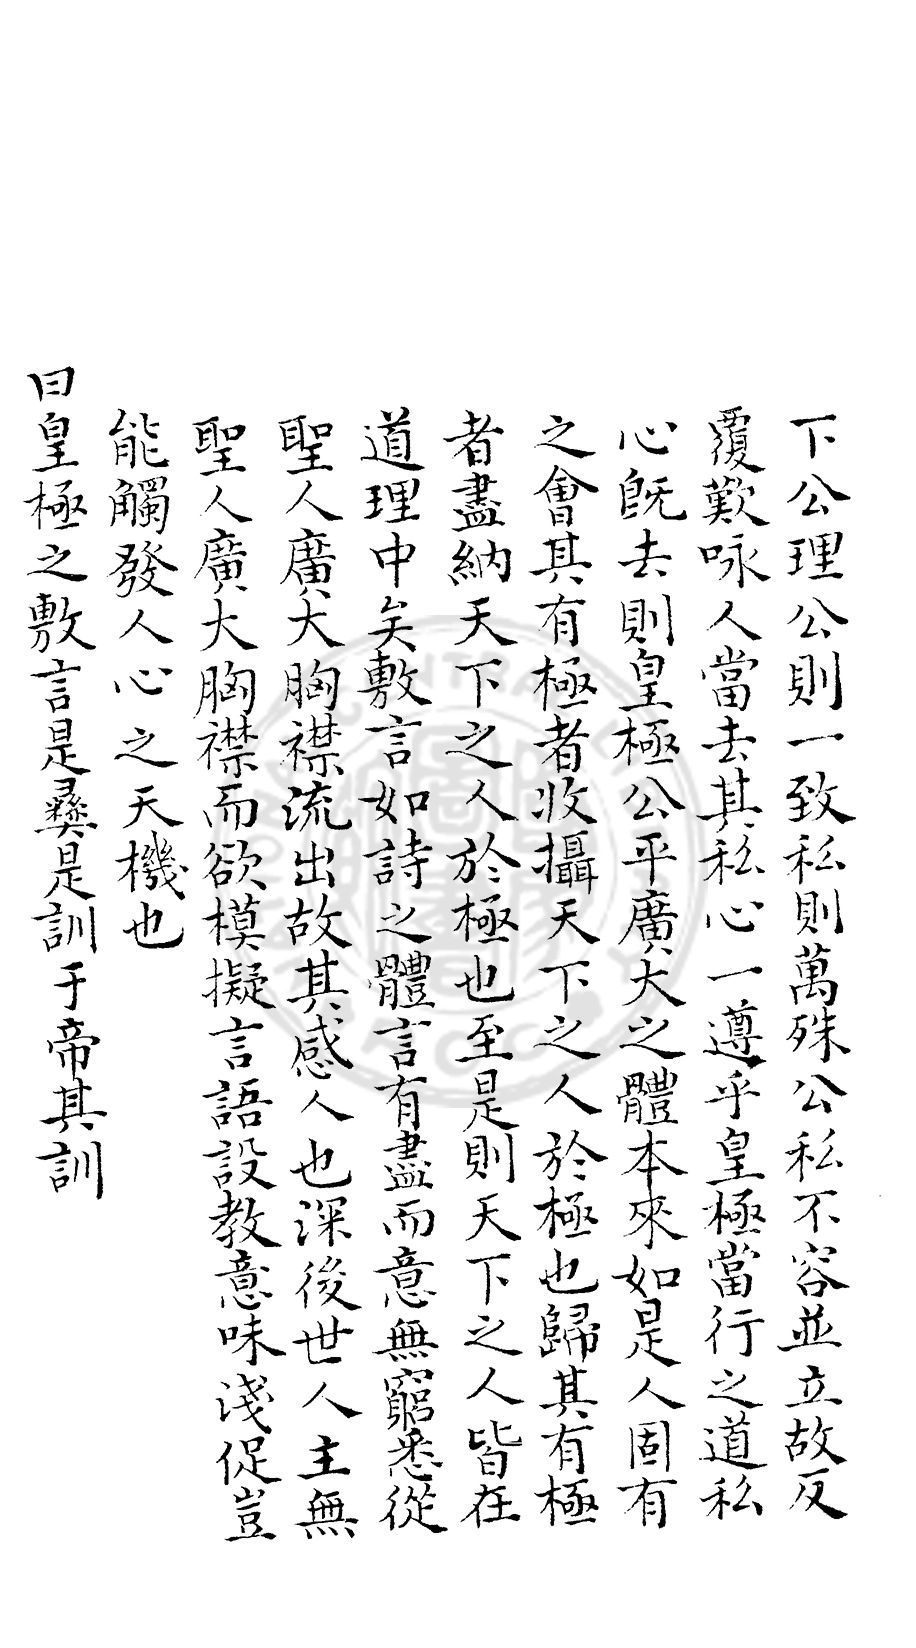 下公理公則一致私則萬殊公私不容並立故反
覆歎咏人當去其私心一遵乎皇極當行之道私
心旣去則皇極公平廣大之體本來如是人固有
之會其有極者收攝天下之人於極也歸其有極
者盡納天下之人於極也至是則天下之人皆在
道理中矣敷言如詩之體言有盡而意無窮悉從
聖人廣大胸襟流出故其感人也深後世人主無
聖人廣大胸襟而欲模擬言語設教意味淺促豈
能觸發人心之天機也
曰皇極之敷言是彝是訓于帝其訓